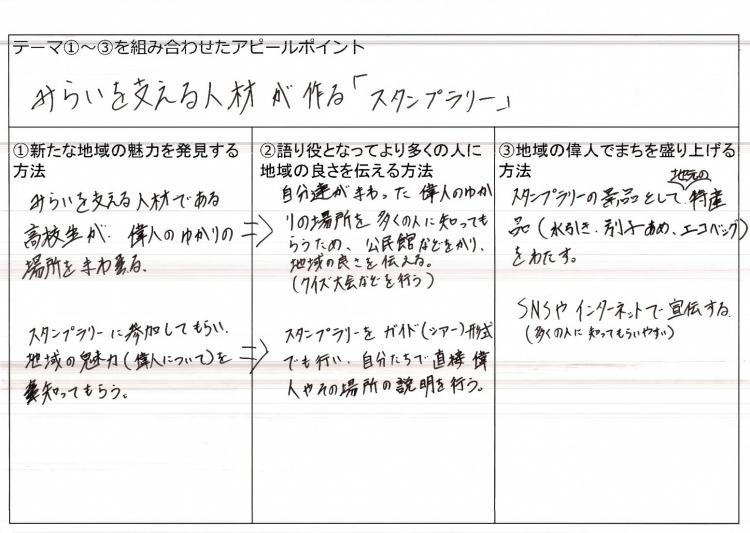 テーマ①～③を組み合わせたアピールポイント
みらいを支える人材が作る「スタンプラリー」
①新たな地域の魅力を発見する
方法
みらいを支える人材である
高校生が、偉人のゆかりの
場所をまわる。
スタンプラリーに参加してもらい、
地域の魅力(偉人について)を
知ってもらう。
②語り役となってより多くの人に
地域の良さを伝える方法
⇒自分達がまわった偉人のゆか
りの場所を多くの人に知っても
らうため、公民館などをかり、
地域の良さを伝える。
(クイズ大会などを行う)
⇒スタンプラリーをガイド(ツアー)形式
でも行い、自分たちで直接偉
人やその場所の説明を行う。
③地域の偉人でまちを盛り上げる
方法
スタンプラリーの景品として地元の特産
品(水引き、別子あめ、エコバッグ)
をわたす。
SNSやインターネットで宣伝する
(多くの人に知ってもらいやすい)